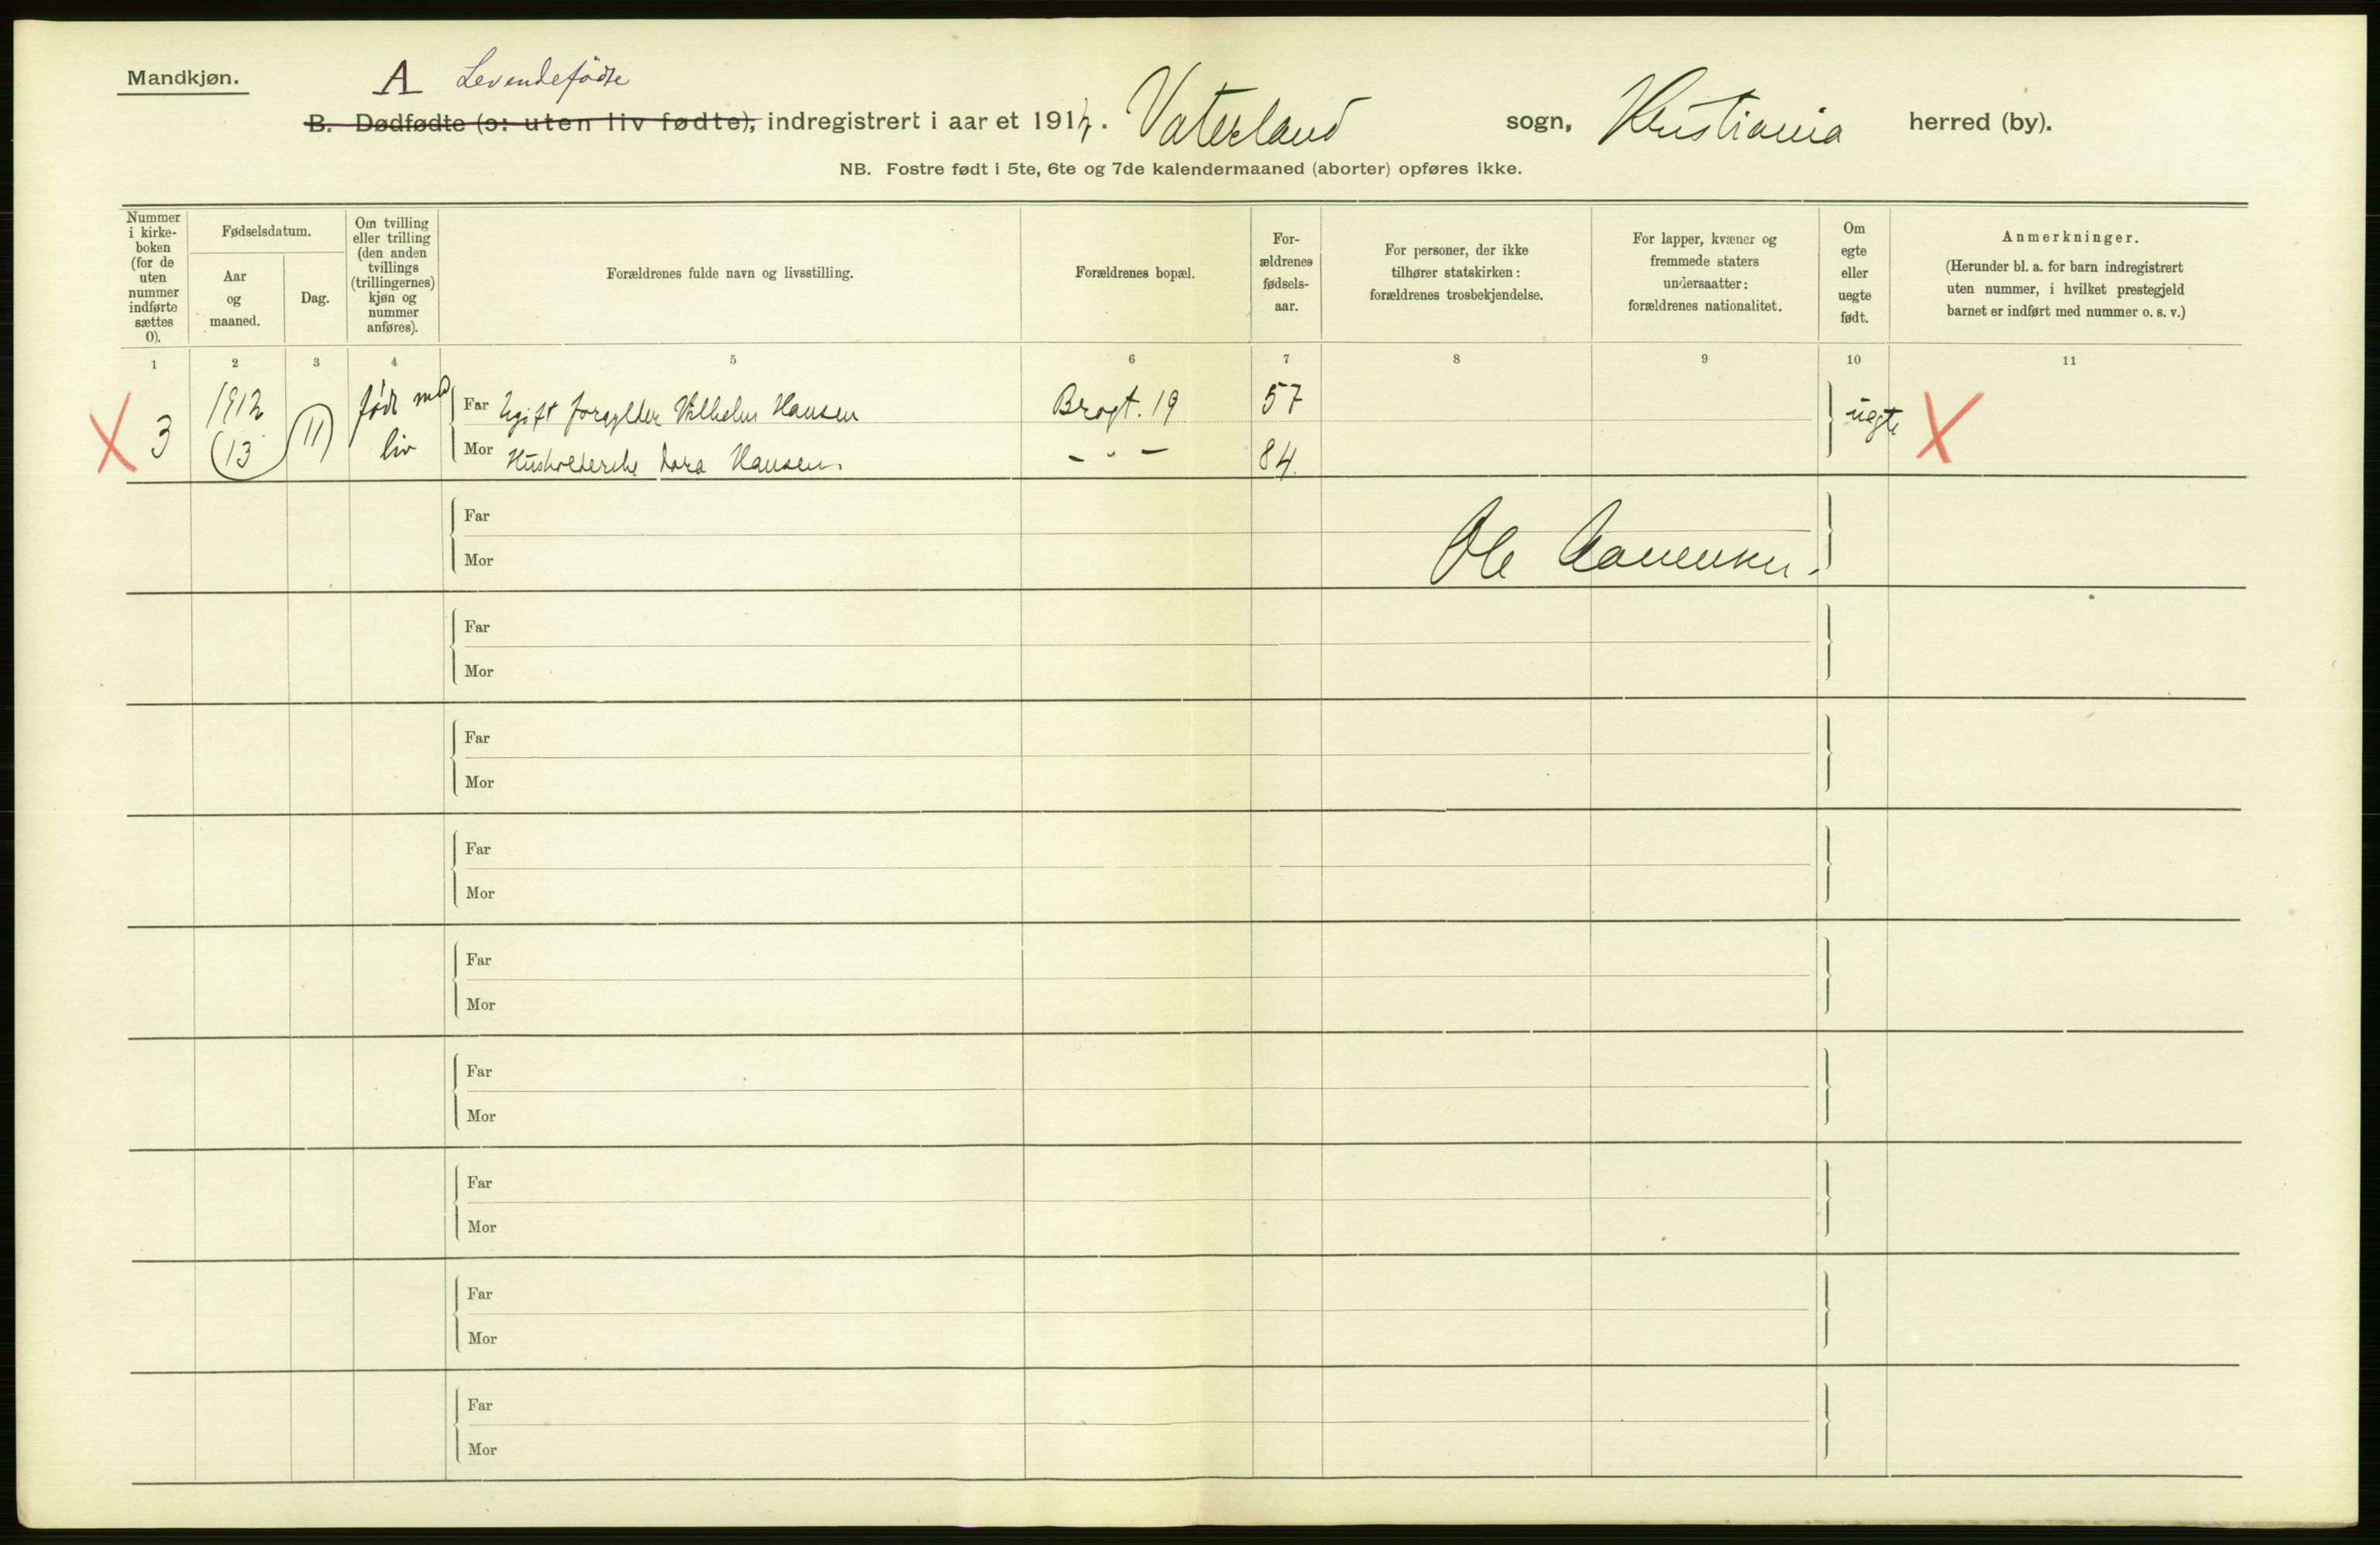 Mandkjøn.
A Levendefødte
B. Dødfødte (ɔ: uten liv fødte), indregistrert i aar et 191 . Vaterland sogn, Kristiania herred (by).
NB. Fostre født i 5te, 6te og 7de kalendermaaned (aborter) opføres ikke.
Nummer
i kirke-
boken
(for de
uten
nummer
indførte
sættes
0).
Fødselsdatum.
Aar
og
maaned.
Dag.
Om tvilling
eller trilling
(den anden
tvillings
(trillingernes)
kjøn og
nummer
anføres).
Forældrenes fulde navn og livsstilling.
Forældrenes bopæl.
For-
ældrenes
fødsels-
aar.
For personer, der ikke
tilhører statskirken:
forældrenes trosbekjendelse.
For lapper, kvæner og
fremmede staters
undersaatter:
forældrenes nationalitet.
Om
egte
eller
uegte
født.
Anmerkninger.
(Herunder bl. a. for barn indregistrert
uten nummer, i hvilket prestegjeld
barnet er indført med nummer o. s. v.)
1 2 3 4 5 6 7 8 9 10 11
X 3 1912 (13 11) født med liv
Far Ugift forgylder Vilhelm Hansen Brogt. 19 57 uegte X
Mor Husholderske Dora Hansen. - " - 84.
Far
Mor
Ole
Far
Mor
Far
Mor
Far
Mor
Far
Mor
Far
Mor
Far
Mor
Far
Mor
Far
Mor